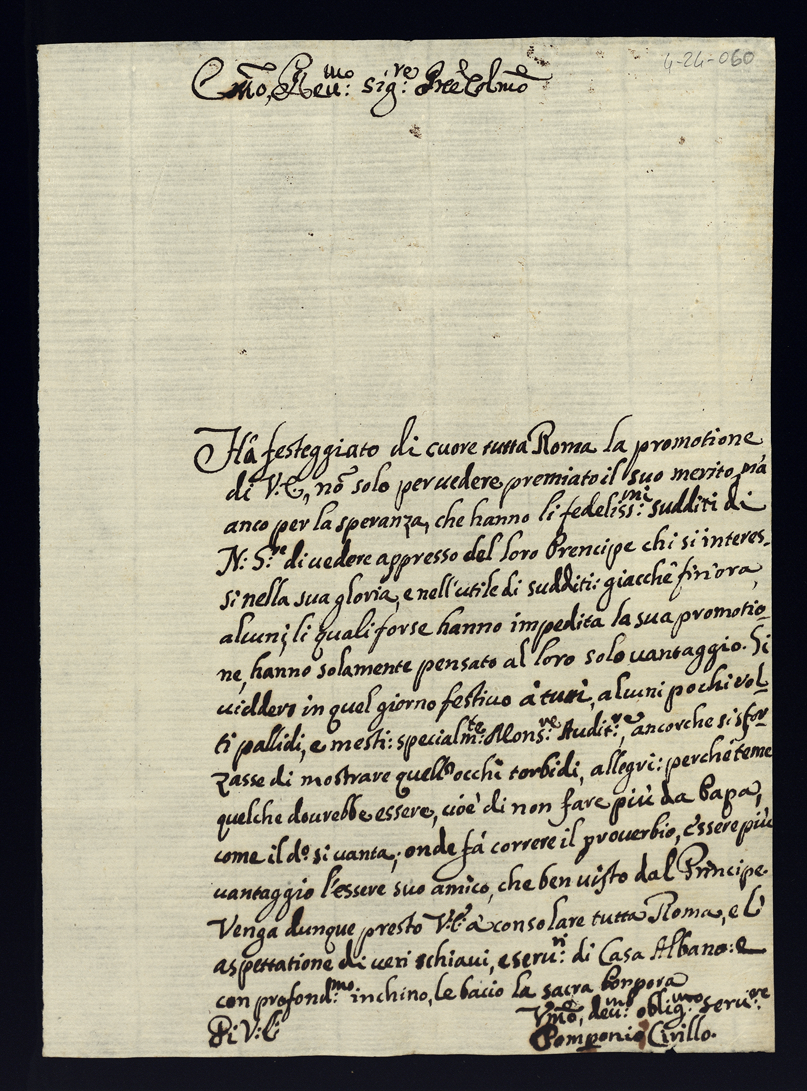 4-24-060
Em̃o, Reu.mo: sig.re: Prẽ Colm̃o
Hà festeggiato di cuore tutta Roma la promotione
di V:E, nõ solo per vedere premiato il suo merito, mà
anco per la speranza, che hanno li fedeliss:mi sudditi di
N: S.re di vedere appresso del loro Prencipe chi si interes-
si nella sua gloria, e nell'utile di sudditi: giacchè fin'ora,
alcuni, li quali forse hanno impedita la sua promotio-
ne, hanno solamente pensato al loro solo vantaggio. Si
viddero in quel giorno festivo à tutti, alcuni pochi vol-
ti pallidi, e mesti: specialm:te Mons:re Audit:re, ancorche si sfor-
zasse di mostrare quell'occhi torbidi, allegri: perche teme
quelche dovrebbe essere, cioè di non fare più da Papa,
come il d.o si vanta; onde fà correre il proverbio, ch'essere più
vantaggio l'essere suo amico, che ben visto dal Principe.
Venga dunque presto V:E à consolare tutta Roma, e l'
aspettatione di veri schiavi, e seru:ri di Casa Albano: e
con profond:mo inchino, le bacio la sacra Porpora
Di V:E:
Vm̃o, deu:mo oblig:mo seru:re
Pomponio Cirillo.